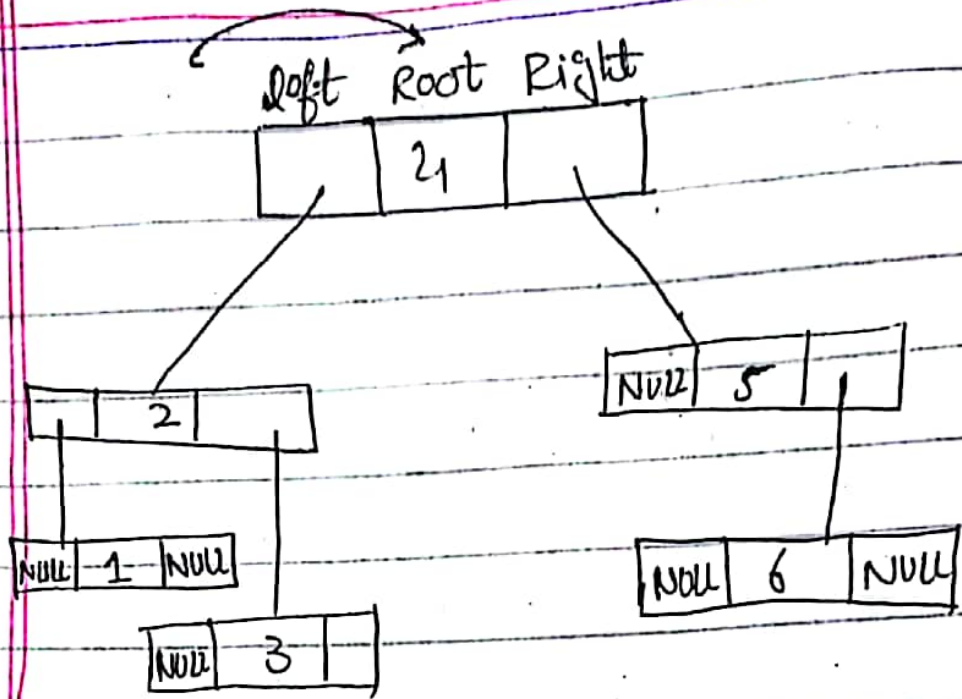 left Root Right
4
2
NULL 5
NULL 1 NULL
NULL 6 NULL
NULL 3